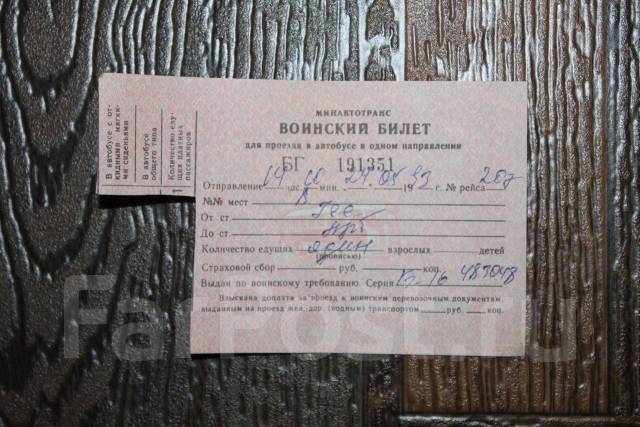 В автобусе с от-
кидными мягки-
ми сиденьями
В автобусе
общего типа
Количество еду-
щих платных
пассажиров
1
МИНАВТОТРАНС
ВОИНСКИЙ БИЛЕТ
для проезда в автобусе в одном направлении
БГ 191351
Отправление 14 час 00 мин. 1992 г. № рейса 207
№№ мест 8
От ст.
До ст.
Количество едущих один взрослых детей
(прописью)
Страховой сбор руб. коп.
Выдан по воинскому требованию. Серия 16 483048
Взыскана доплата за проезд к воинским перевозочным документам,
выданным на проезд жел. дор. (водным) транспортом руб. коп.
FarPost.ru